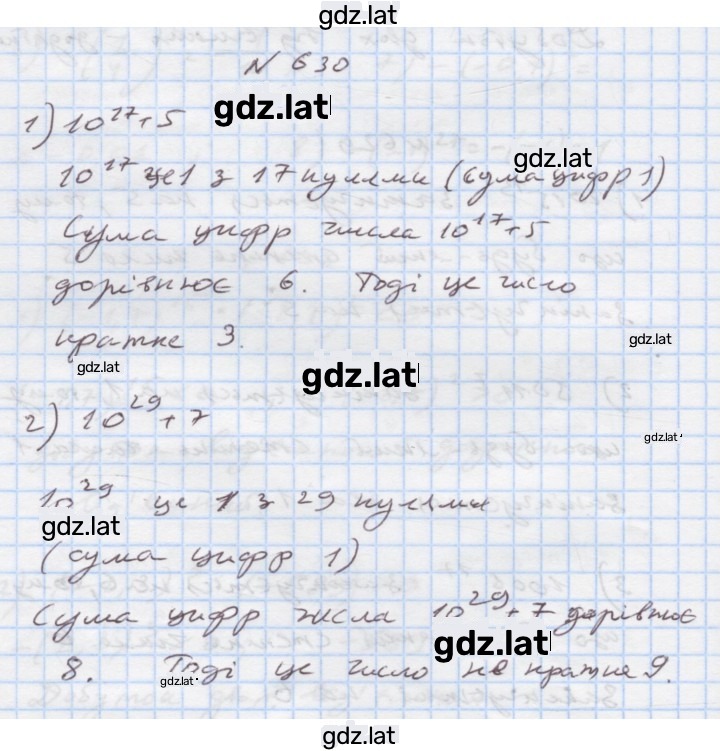 gdz.lat
N 630
gdz.lat
1) 10¹⁷+5
gdz.lat
10¹⁷ це 1 з 17 нулями (сума цифр 1)
Сума цифр числа 10¹⁷+5
дорівнює 6. Тоді це число
gdz.lat
кратне 3.
gdz.lat
gdz.lat
2) 10²⁹ + 7
gdz.lat
10²⁹ це 1 з 29 нулями
gdz.lat
(сума цифр 1)
Сума цифр числа 10²⁹+7 дорівнює
gdz.lat
8. Тоді це число не кратне 9.
gdz.lat
gdz.lat